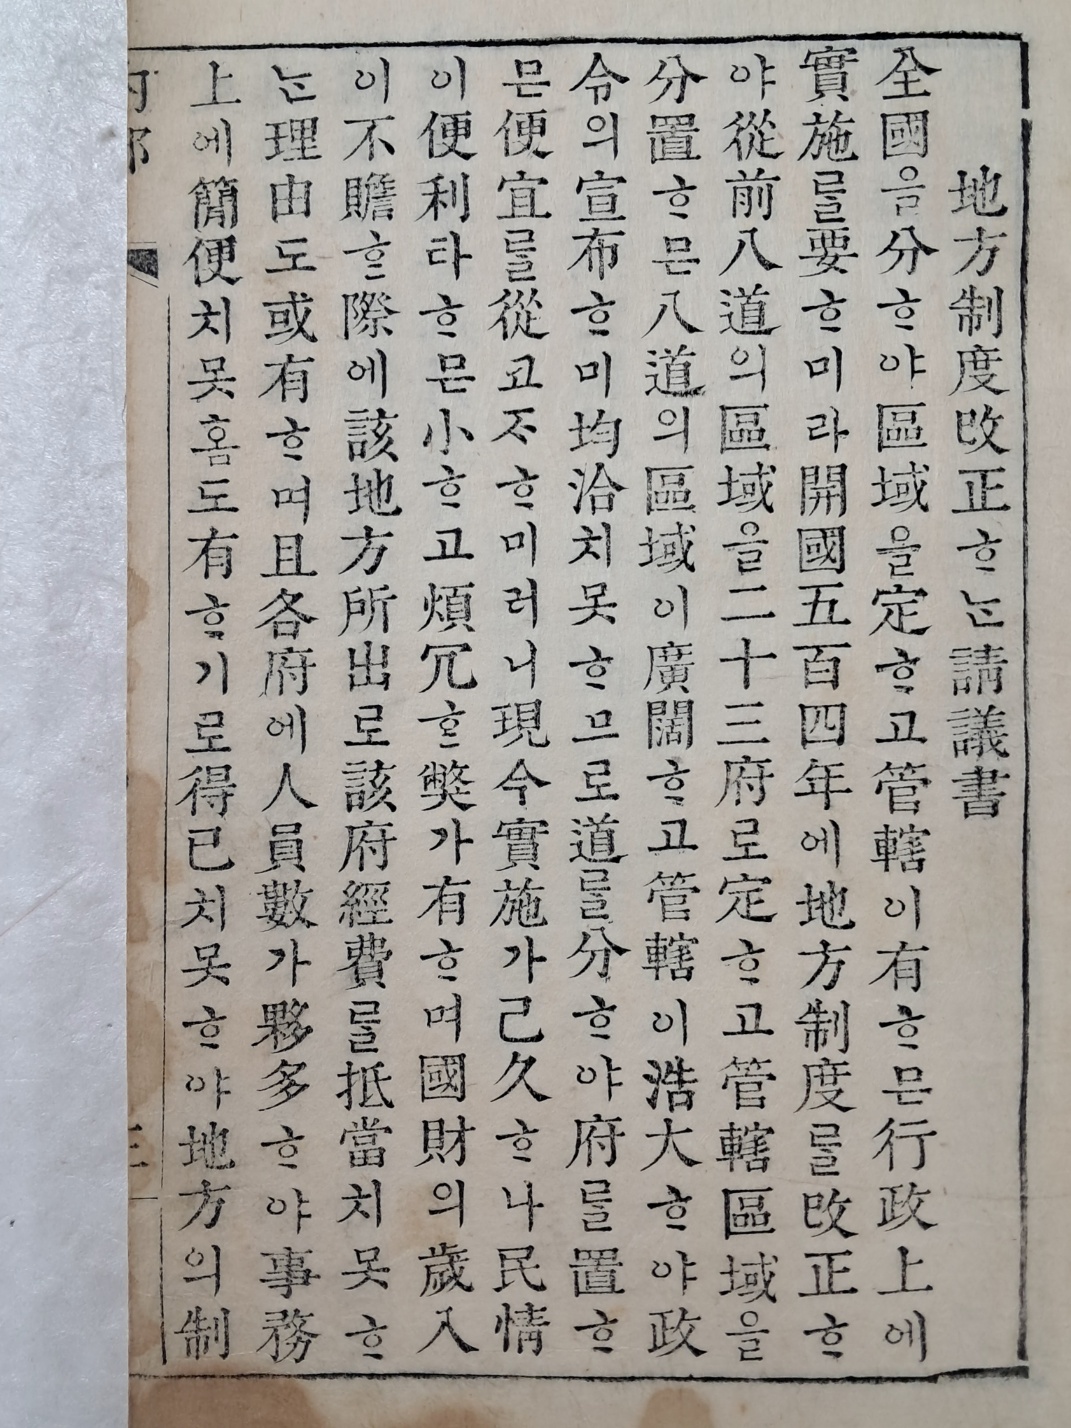 地方制度改正ᄒᆞᄂᆞᆫ請議書
全國을分ᄒᆞ야區域을定ᄒᆞ고管轄이有ᄒᆞ믄行政上에
實施를要ᄒᆞ미라開國五百四年에地方制度를改正ᄒᆞ
야從前八道의區域을二十三府로定ᄒᆞ고管轄區域을
分置ᄒᆞ믄八道의區域이廣闊ᄒᆞ고管轄이浩大ᄒᆞ야政
令의宣布ᄒᆞ미均洽치못ᄒᆞ므로道를分ᄒᆞ야府를置ᄒᆞ
믄便宜를從고ᄌᆞᄒᆞ미러니現今實施가己久ᄒᆞ나民情
이便利타ᄒᆞ믄小ᄒᆞ고煩冗ᄒᆞᆫ獘가有ᄒᆞ며國財의歲入
이不贍ᄒᆞᆫ際에該地方所出로該府經費를抵當치못ᄒᆞ
ᄂᆞᆫ理由도或有ᄒᆞ며且各府에人員數가夥多ᄒᆞ야事務
上에簡便치못홈도有ᄒᆞ기로得已치못ᄒᆞ야地方의制